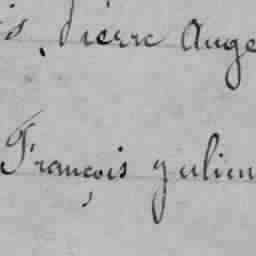 Pierre Auge
François yulien